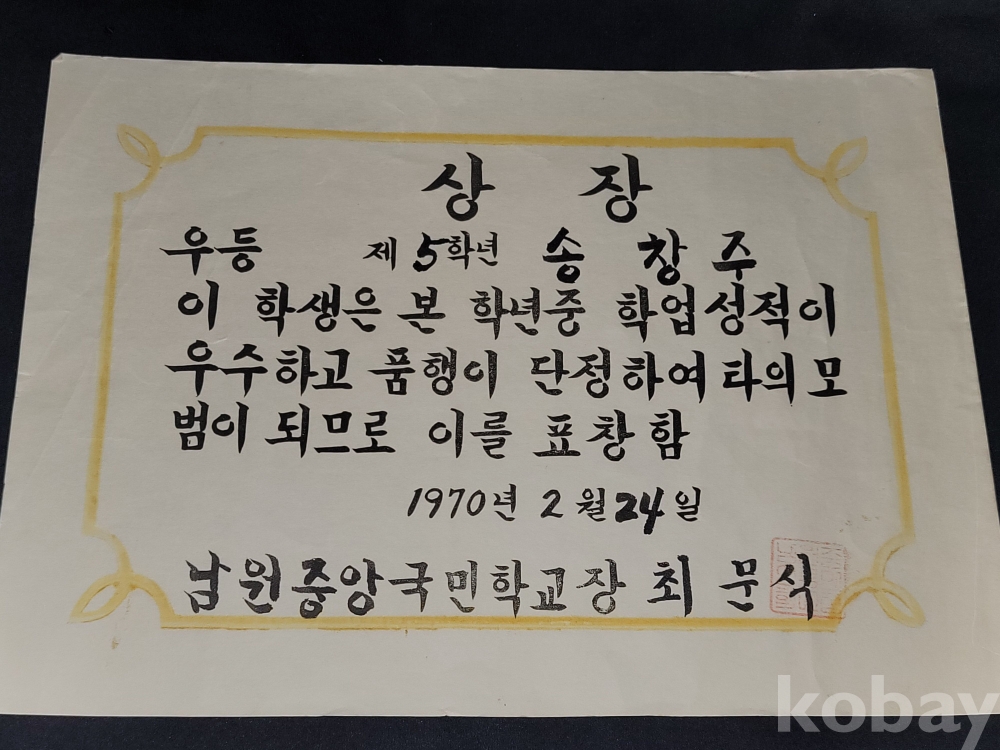 상 장
우등 제 5학년 송 창 주
이 학생은 본 학년중 학업성적이
우수하고 품행이 단정하여 타의 모
범이 되므로 이를 표창함
1970년 2월 24일
남원중앙국민학교장 최 문 식
kobay